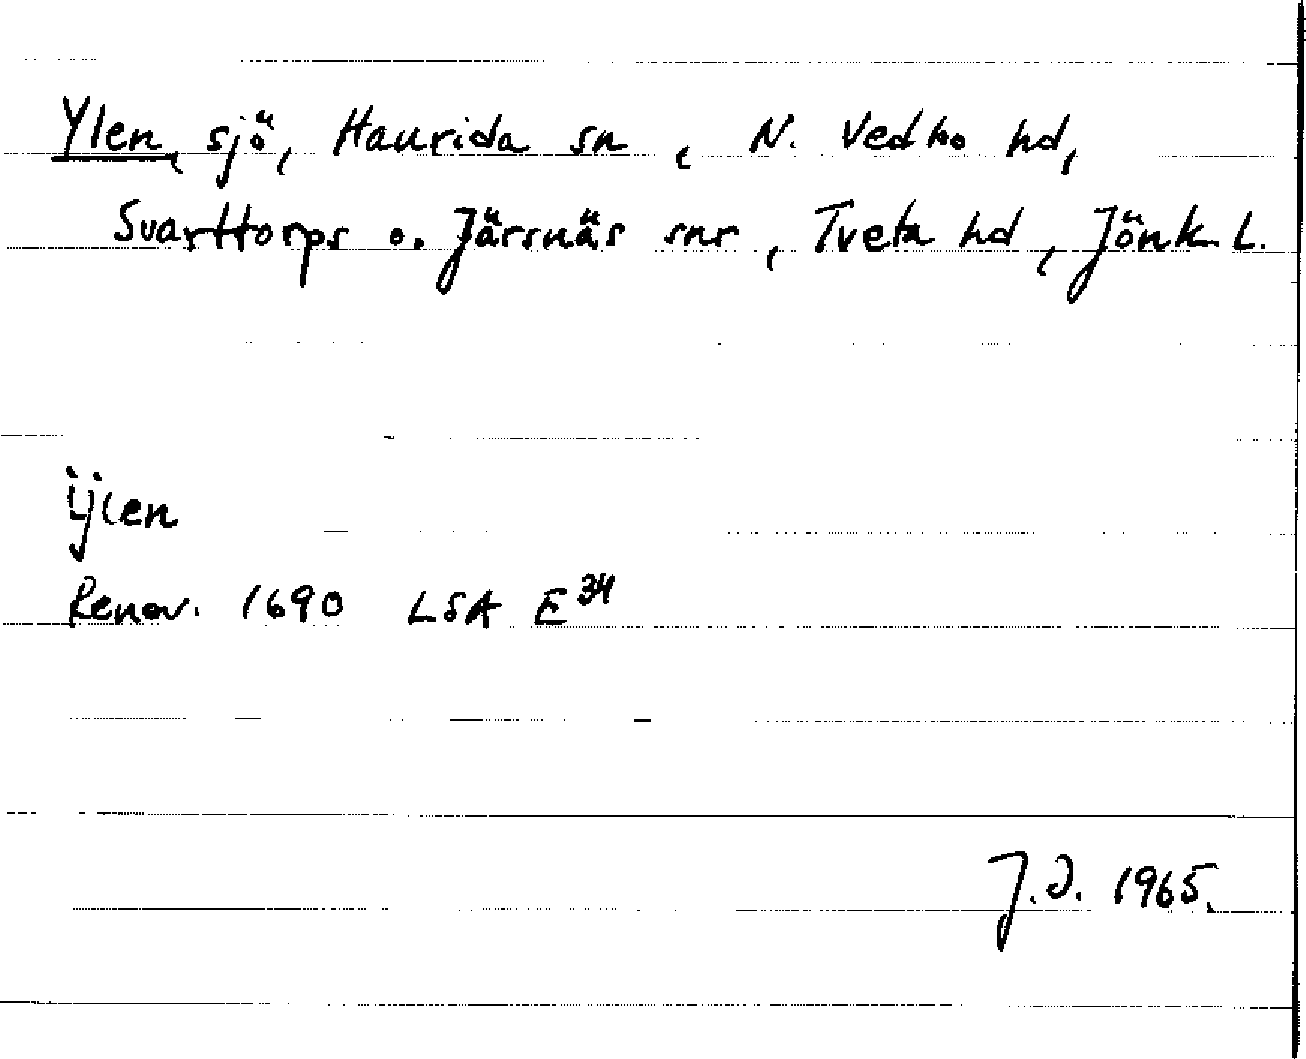 Ylen, sjö, Haurida sn, N. Vedbo hd,
Svarttorps o. Järsnäs snr, Tveta hd, Jönk. L.
ÿlen
Renov. 1690 LSA E³⁴
J.Ö. 1965.